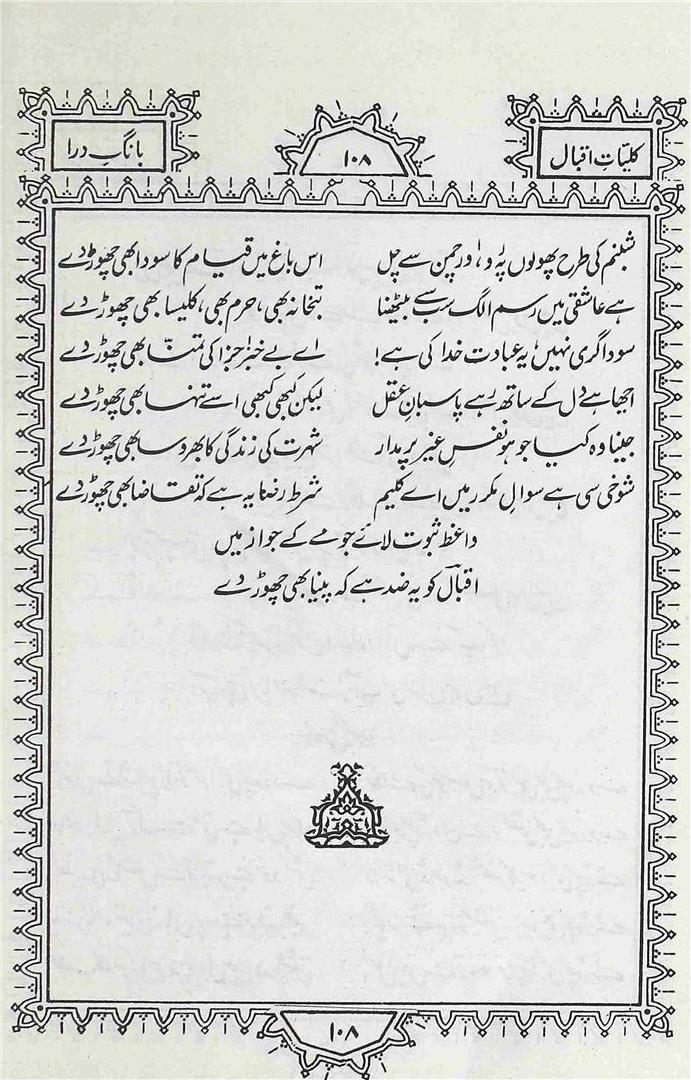 کلیاتِ اقبال ۱۰۸ بانگِ درا
شبنم کی طرح پھولوں پہ رو، اور چمن سے چل اس باغ میں قیام کا سودا بھی چھوڑ دے
ہے عاشقی میں رسم الگ سب سے بیٹھنا بتخانہ بھی، حرم بھی، کلیسا بھی چھوڑ دے
سوداگری نہیں، یہ عبادت خدا کی ہے! اے بے خبر! جزا کی تمنّا بھی چھوڑ دے
اچھا ہے دل کے ساتھ رہے پاسبانِ عقل لیکن کبھی کبھی اسے تنہا بھی چھوڑ دے
جینا وہ کیا جو ہو نفسِ غیر پر مدار شہرت کی زندگی کا بھروسا بھی چھوڑ دے
شوخی سی ہے سوالِ مکرر میں اے کلیم شرطِ رضا یہ ہے کہ تقاضا بھی چھوڑ دے
واعظ ثبوت لائے جو مے کے جواز میں
اقبالؔ کو یہ ضد ہے کہ پینا بھی چھوڑ دے
۱۰۸